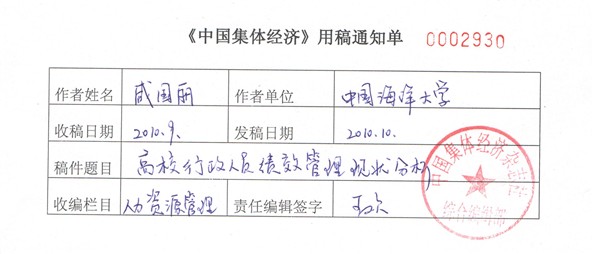 《中国集体经济》用稿通知单 0002930
作者姓名 戚国丽 作者单位 中国海洋大学
收稿日期 2010.9. 发稿日期 2010.10.
稿件题目 高校行政人员绩效管理现状分析
收编栏目 人力资源管理 责任编辑签字
中国集体经济杂志社
综合编辑部